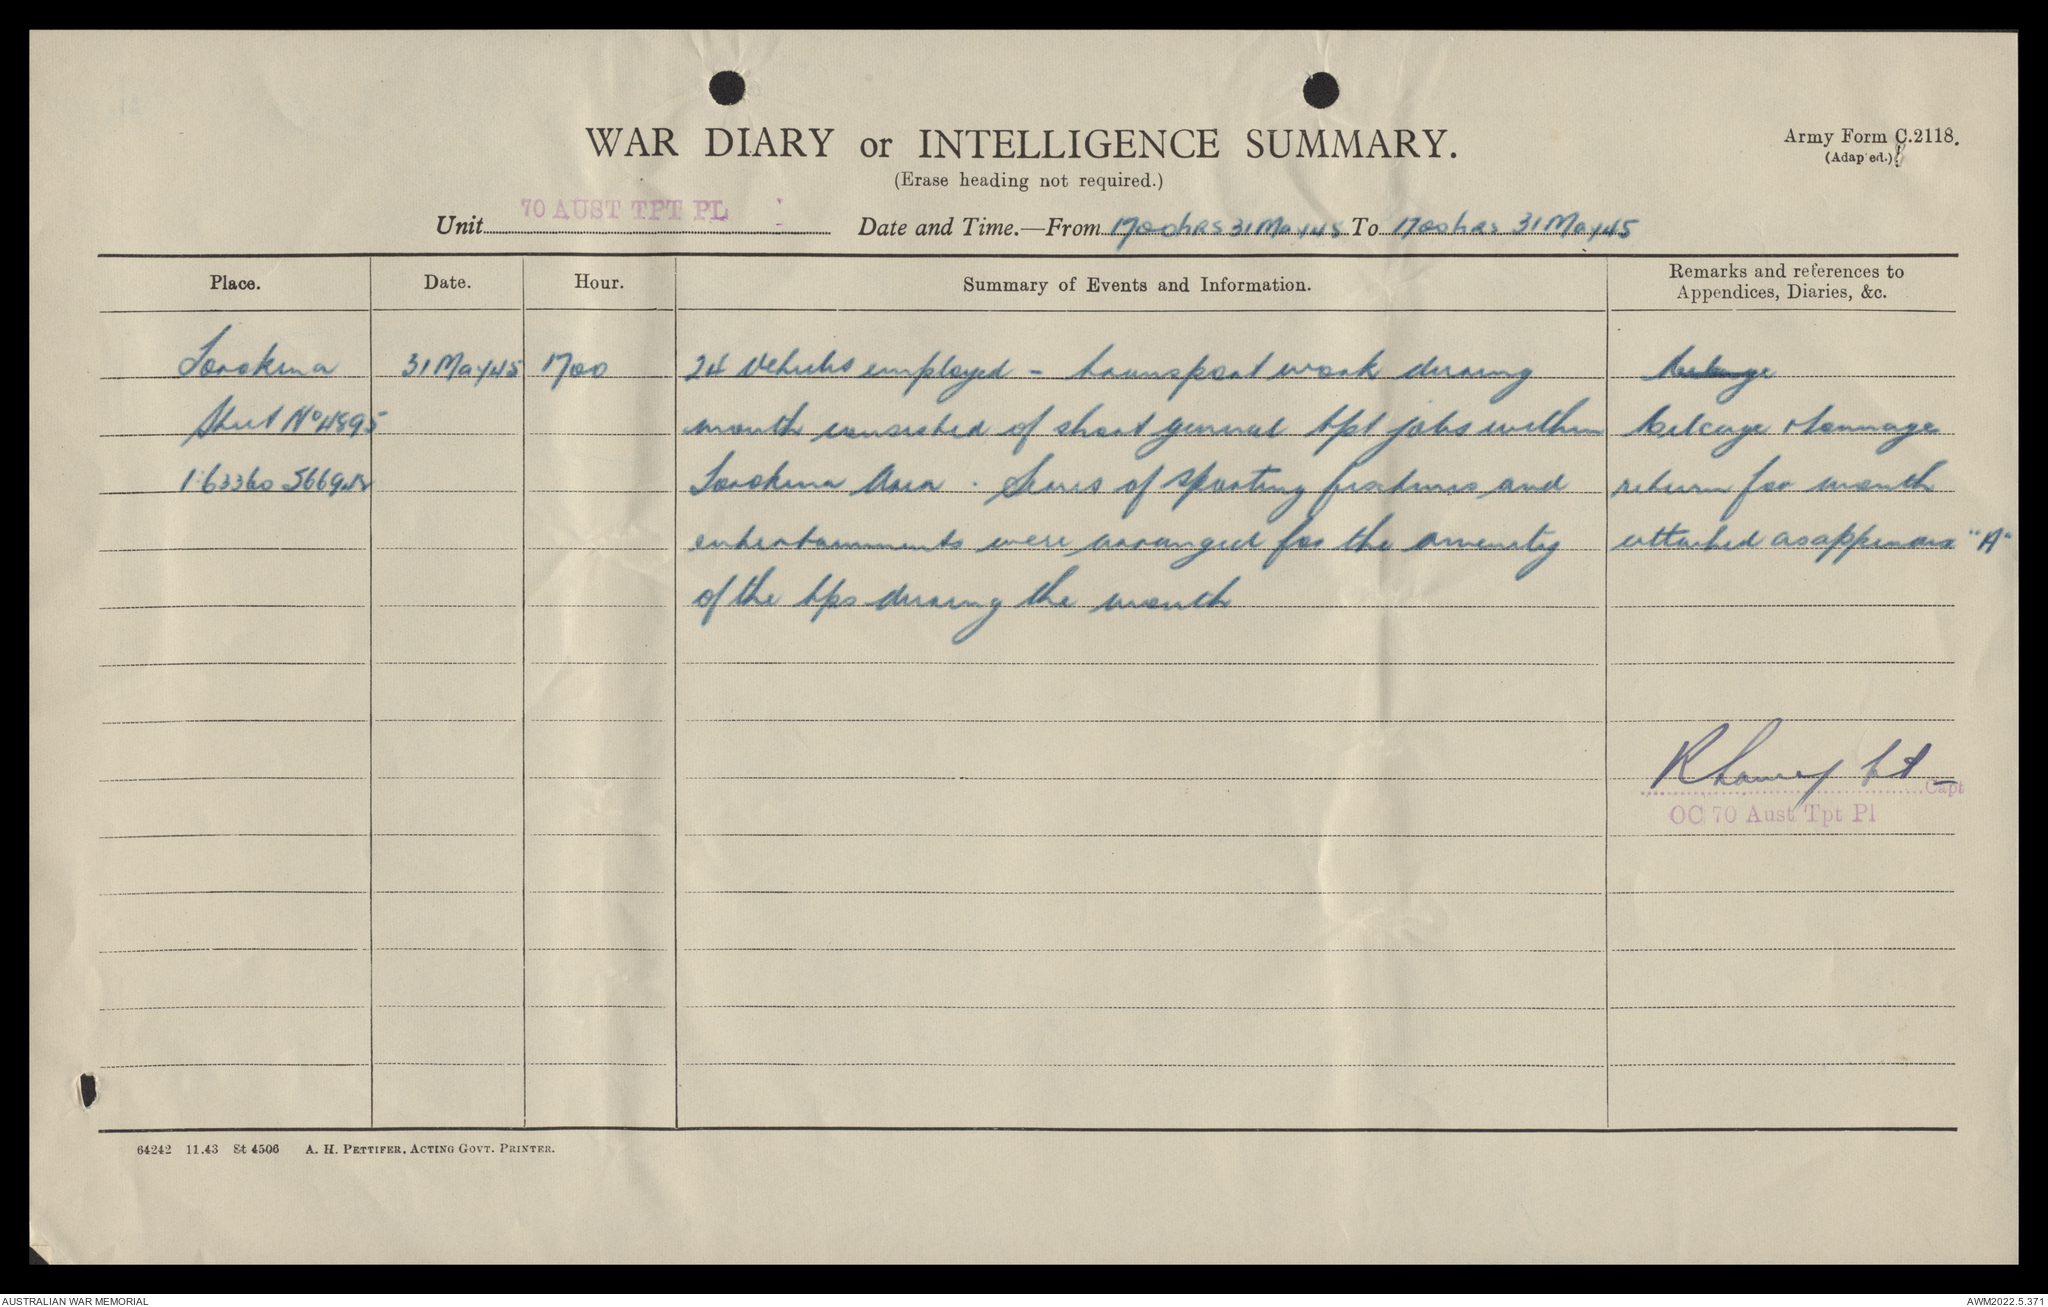 WAR DIARY or INTELLIGENCE SUMMARY.
(Erase heading not required.)
Army Form C.2118.
(Adapted.)
Unit 70 AUST TPT PL Date and Time.—From 1700hrs 31 May 45 To 1700hrs 31 May 45
Place. Date. Hour. Summary of Events and Information. Remarks and references to Appendices, Diaries, &c.
Torokina 31 May 45 1700 24 Vehicles employed - transport work during
Sheet No 4895 month consisted of short general tpt jobs within Mileage & tonnage
1:63360 Torokina Area. Series of sporting fixtures and return for month
entertainments were arranged for the amenity attached as appendix "A"
of the tps during the month
Lt
Capt
OC 70 Aust Tpt Pl
64242 11.43 St 4506 A. H. PETTIFER, ACTING GOVT. PRINTER.
AUSTRALIAN WAR MEMORIAL
AWM2022.5.371